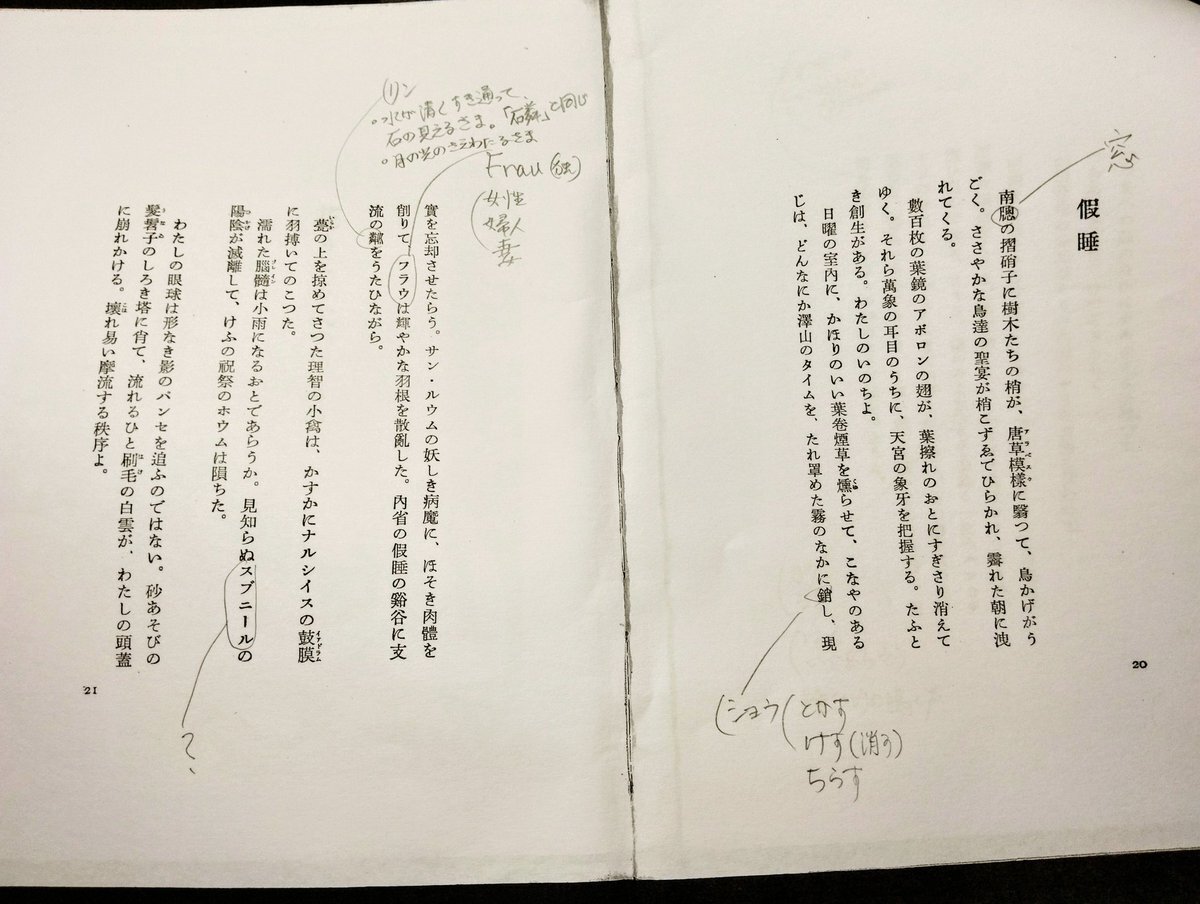 窓
假睡
アラベスク
南牕の摺硝子に樹木たちの梢が、唐草模樣に翳つて、鳥かげがう
ごく。ささやかな鳥達の聖宴が梢こずゑでひらかれ、霽れた朝に洩
れてくる。
數百枚の葉鏡のアポロンの翅が、葉擦れのおとにすぎさり消えて
ゆく。それら萬象の耳目のうちに、天宮の象牙を把握する。たふと
き創生がある。わたしのいのちよ。
日曜の室內に、かほりのいい葉卷煙草を燻らせて、こなやのある
じは、どんなにか澤山のタイムを、たれ罩めた霧のなかに銷し、現
ショウ
とかす
けす(消す)
ちらす
20
リン
・水が清くすき通って、
石の見えるさま。「石粦」と同じ
・月の光のさえわたるさま
Frau
女性
婦人
妻
實を忘却させたらう。サン・ルウムの妖しき病魔に、ほそき肉體を
削りて、フラウは輝やかな羽根を散亂した。內省の假睡の谿谷に支
流の粼をうたひながら。
イアドラム
甍の上を掠めてさつた理智の小禽は、かすかにナルシイスの鼓膜
に羽搏いてのこつた。
ブレイン
濡れた腦髓は小雨になるおとであらうか。見知らぬスブニールの
陽陰が滅離して、けふの祝祭のホウムは隕ちた。
?
わたしの眼球は形なき影のパンセを追ふのではない。砂あそびの
子のしろき塔に肯て、流れるひと刷毛の白雲が、わたしの頭蓋
に崩れかける。壞れ易い摩流する秩序よ。
21